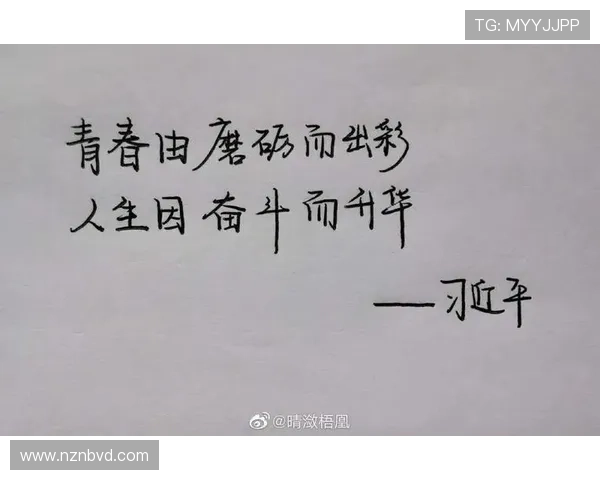 TG: MYYJJPP
青春由磨砺而出彩
人生因奋斗而升华
——习近平
@晴潋梧凰
www.nznbvd.com